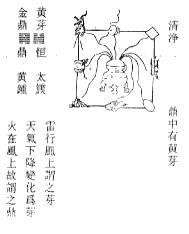 清淨
鼎中有黃芽
黃芽 恒 太簇
金鼎 鼎 黃鍾
雷行風上謂之芽
天氣下降變化爲芽
火在風上故謂之鼎